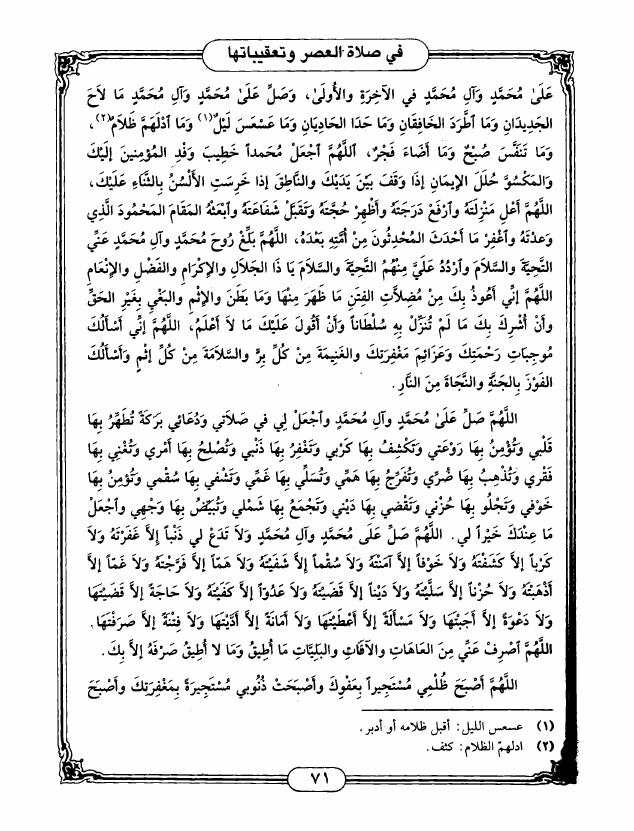 في صلاة العصر وتعقيباتها
عَلَىٰ مُحَمَّدٍ وَآلِ مُحَمَّدٍ في الآخِرَةِ والأُولَىٰ، وَصَلِّ عَلَىٰ مُحَمَّدٍ وَآلِ مُحَمَّدٍ مَا لاَحَ
الجَدِيدَانِ وَمَا ٱطَّرَدَ الخَافِقَانِ وَمَا حَدَا الحَادِيَانِ وَمَا عَسْعَسَ لَيْلٌ(١) وَمَا ٱدْلَهَمَّ ظَلاَمٌ(٢)،
وَمَا تَنَفَّسَ صُبْحٌ وَمَا أَضَاءَ فَجْرٌ. اَللَّهُمَّ ٱجْعَلْ مُحَمداً خَطِيبَ وَفْدِ المُؤْمِنينَ إلَيْكَ
وَالمَكْسُوَّ حُلَلَ الإِيمَانِ إذَا وَقَفَ بَيْنَ يَدَيْكَ والنَّاطِقَ إذا خَرِسَتِ الأَلْسُنُ بِالثَّنَاءِ عَلَيْكَ،
اللَّهُمَّ أَعْلِ مَنْزِلَتَهُ وٱرْفَعْ دَرَجَتَهُ وأَظْهِرْ حُجَّتَهُ وَتَقَبَّلْ شَفَاعَتَهُ وٱبْعَثْهُ المَقَامَ المَحْمُودَ الَّذِي
وَعدْتَهُ وٱغْفِرْ مَا أَحْدَثَ المُحْدِثُونَ مِنْ أُمَّتِهِ بَعْدَهُ، اللَّهُمَّ بَلِّغْ رُوحَ مُحَمَّدٍ وآلِ مُحَمَّدٍ عَنِّي
التَّحِيَّةَ والسَّلاَمَ وٱرْدُدْ عَلَيَّ مِنْهُمُ التَّحِيَّةَ والسَّلاَمَ يَا ذَا الجَلاَلِ والإِكْرَامِ والفَضْلِ والإِنْعَامِ
اللَّهُمَّ إنِّي أَعُوذُ بِكَ مِنْ مُضِلاَّتِ الفِتَنِ مَا ظَهَرَ مِنْهَا وَمَا بَطَنَ والإِثْمِ والبَغْيِ بِغَيْرِ الحَقِّ
وأَنْ أُشْرِكَ بِكَ مَا لَمْ تُنَزِّلْ بِهِ سُلْطَاناً وَأَنْ أَقُولَ عَلَيْكَ مَا لاَ أَعْلَمُ، اللَّهُمَّ إنِّي أَسْأَلُكَ
مُوجِبَاتِ رَحْمَتِكَ وَعَزَائِمَ مَغْفِرَتِكَ والغَنِيمَةَ مِنْ كُلِّ بِرٍّ والسَّلاَمَةَ مِنْ كُلِّ إثْمٍ وَأَسْأَلُكَ
الفَوْزَ بِالجَنَّةِ والنَّجَاةَ مِنَ النَّارِ.
اللَّهُمَّ صَلِّ عَلَىٰ مُحَمَّدٍ وآلِ مُحَمَّدٍ وٱجْعَلْ لِي في صَلاَتي وَدُعَائي بَرَكَةً تُطَهِّرُ بِهَا
قَلْبي وَتُؤْمِنُ بِهَا رَوْعَتي وَتَكْشِفُ بِهَا كَرْبي وَتَغْفِرُ بِهَا ذَنْبي وَتُصْلِحُ بِهَا أَمْري وَتُغْني بِهَا
فَقْري وَتُذْهِبُ بِهَا ضُرِّي وَتُفَرِّجُ بِهَا هَمِّي وَتُسَلِّي بِهَا غَمِّي وَتَشْفي بِهَا سُقْمي وَتُؤْمِنُ بِهَا
خَوْفي وَتَجْلُو بِهَا حُزْني وَتَقْضي بِهَا دَيْني وَتَجْمَعُ بِهَا شَمْلي وَتُبَيِّضُ بِهَا وَجْهي وٱجْعَلْ
مَا عِنْدَكَ خَيْراً لي. اللَّهُمَّ صَلِّ عَلَى مُحَمَّدٍ وَآلِ مُحَمَّدٍ وَلاَ تَدَعْ لي ذَنْباً إلاَّ غَفَرْتَهُ وَلاَ
كَرْباً إلاَّ كَشَفْتَهُ وَلاَ خَوْفاً إلاَّ آمَنْتَهُ وَلاَ سُقْماً إلاَّ شَفَيْتَهُ وَلاَ هَمّاً إلاَّ فَرَّجْتَهُ وَلاَ غَمّاً إلاَّ
أَذْهَبْتَهُ وَلاَ حُزْناً إلاَّ سَلَّيْتَهُ وَلاَ دَيْناً إلاَّ قَضَيْتَهُ وَلاَ عَدُوّاً إلاَّ كَفَيْتَهُ وَلاَ حَاجَةً إلاَّ قَضَيْتَهَا
وَلاَ دَعْوَةً إلاَّ أَجَبْتَهَا وَلاَ مَسْأَلَةً إلاَّ أَعْطَيْتَهَا وَلاَ أَمَانَةً إلاَّ أَدَّيْتَهَا وَلاَ فِتْنَةً إلاَّ صَرَفْتَهَا.
اللَّهُمَّ ٱصْرِفْ عَنِّي مِنَ العَاهَاتِ والآفَاتِ والبَلِيَّاتِ مَا أُطِيقُ وَمَا لا أُطِيقُ صَرْفَهُ إلاَّ بِكَ.
اللَّهُمَّ أَصْبَحَ ظُلْمِي مُسْتَجِيراً بِعَفْوِكَ وأَصْبَحَتْ ذُنُوبي مُسْتَجِيرَةً بِمَغْفِرَتِكَ وأَصْبَحَ
(١) عسعس الليل: أقبل ظلامه أو أدبر.
(٢) ادلهمّ الظلام: كثف.
٧١